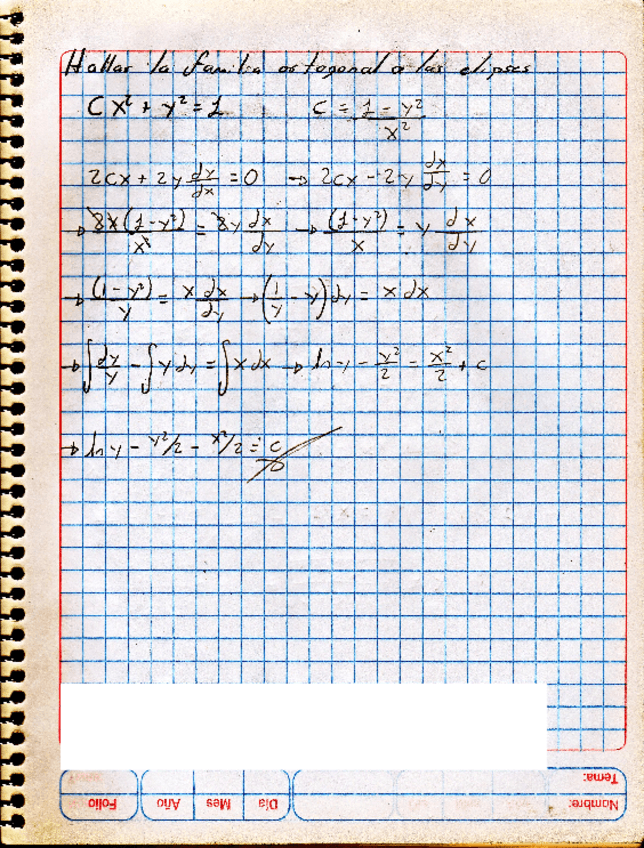 Hallar la familia ortogonal a las elipses
Cx² + y² = 1 C = (1 - y²)/x²
2Cx + 2y dy/dx = 0 → 2Cx - 2y dx/dy = 0
→ 2x(1 - y²)/x² = 2y dx/dy → (1 - y²)/x = y dx/dy
→ (1 - y²)/y = x dx/dy → (1/y - y) dy = x dx
→ ∫dy/y - ∫y dy = ∫x dx → ln y - y²/2 = x²/2 + c
→ ln y - y²/2 - x²/2 = c
Tema:
Nombre:
Día Mes Año
Folio